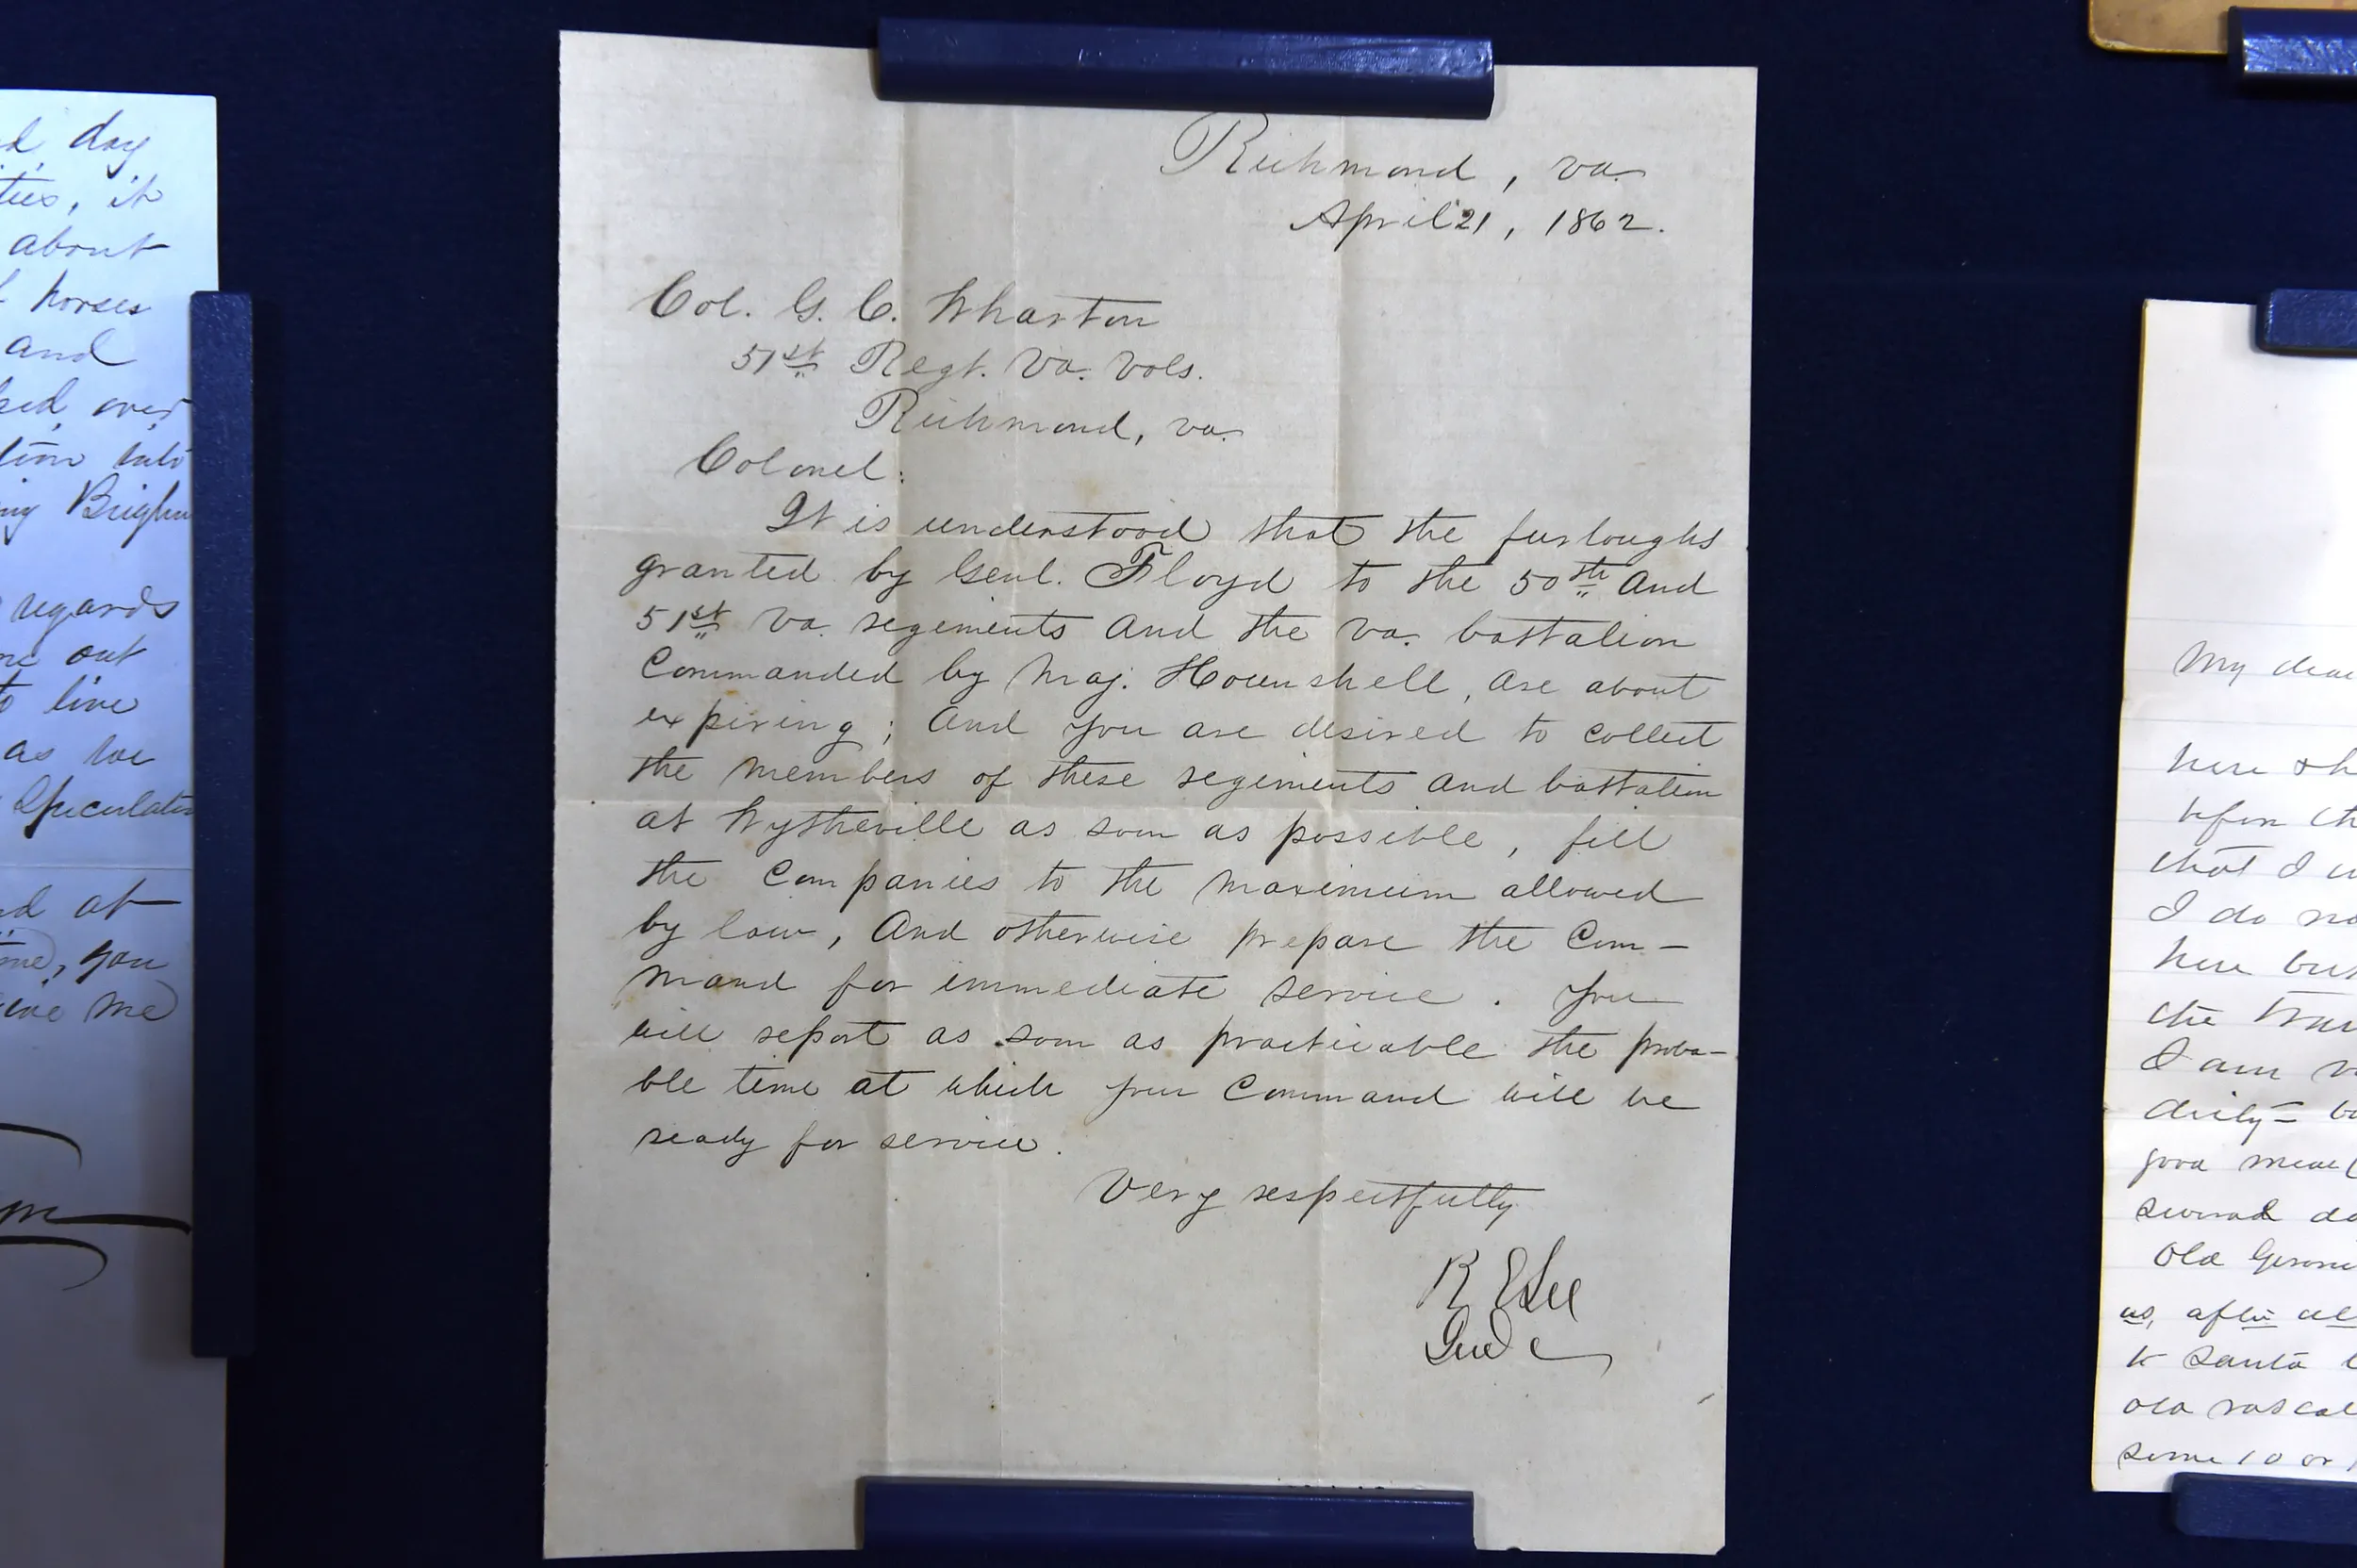 day
it
about
horses
and
over
Brigham
regards
out
to live
as we
Speculation
at
you
me
Richmond, Va.
April 21, 1862.
Col. G. C. Wharton
51st Regt. Va. Vols.
Richmond, Va.
Colonel:
It is understood that the furloughs
granted by Genl. Floyd to the 50th and
51st Va. regiments and the Va. battalion
Commanded by Maj. Hounshell, are about
expiring; and you are desired to collect
the members of these regiments and battalion
at Wytheville as soon as possible, fill
the Companies to the maximum allowed
by law, and otherwise prepare the Com-
mand for immediate service. You
will report as soon as practicable the proba-
ble time at which your Command will be
ready for service.
Very respectfully
R E Lee
Genl
My dear
here
that I
I do
here but
the
I am
good
several
Old
us, after all
to Santa
old rascal
some 10 or